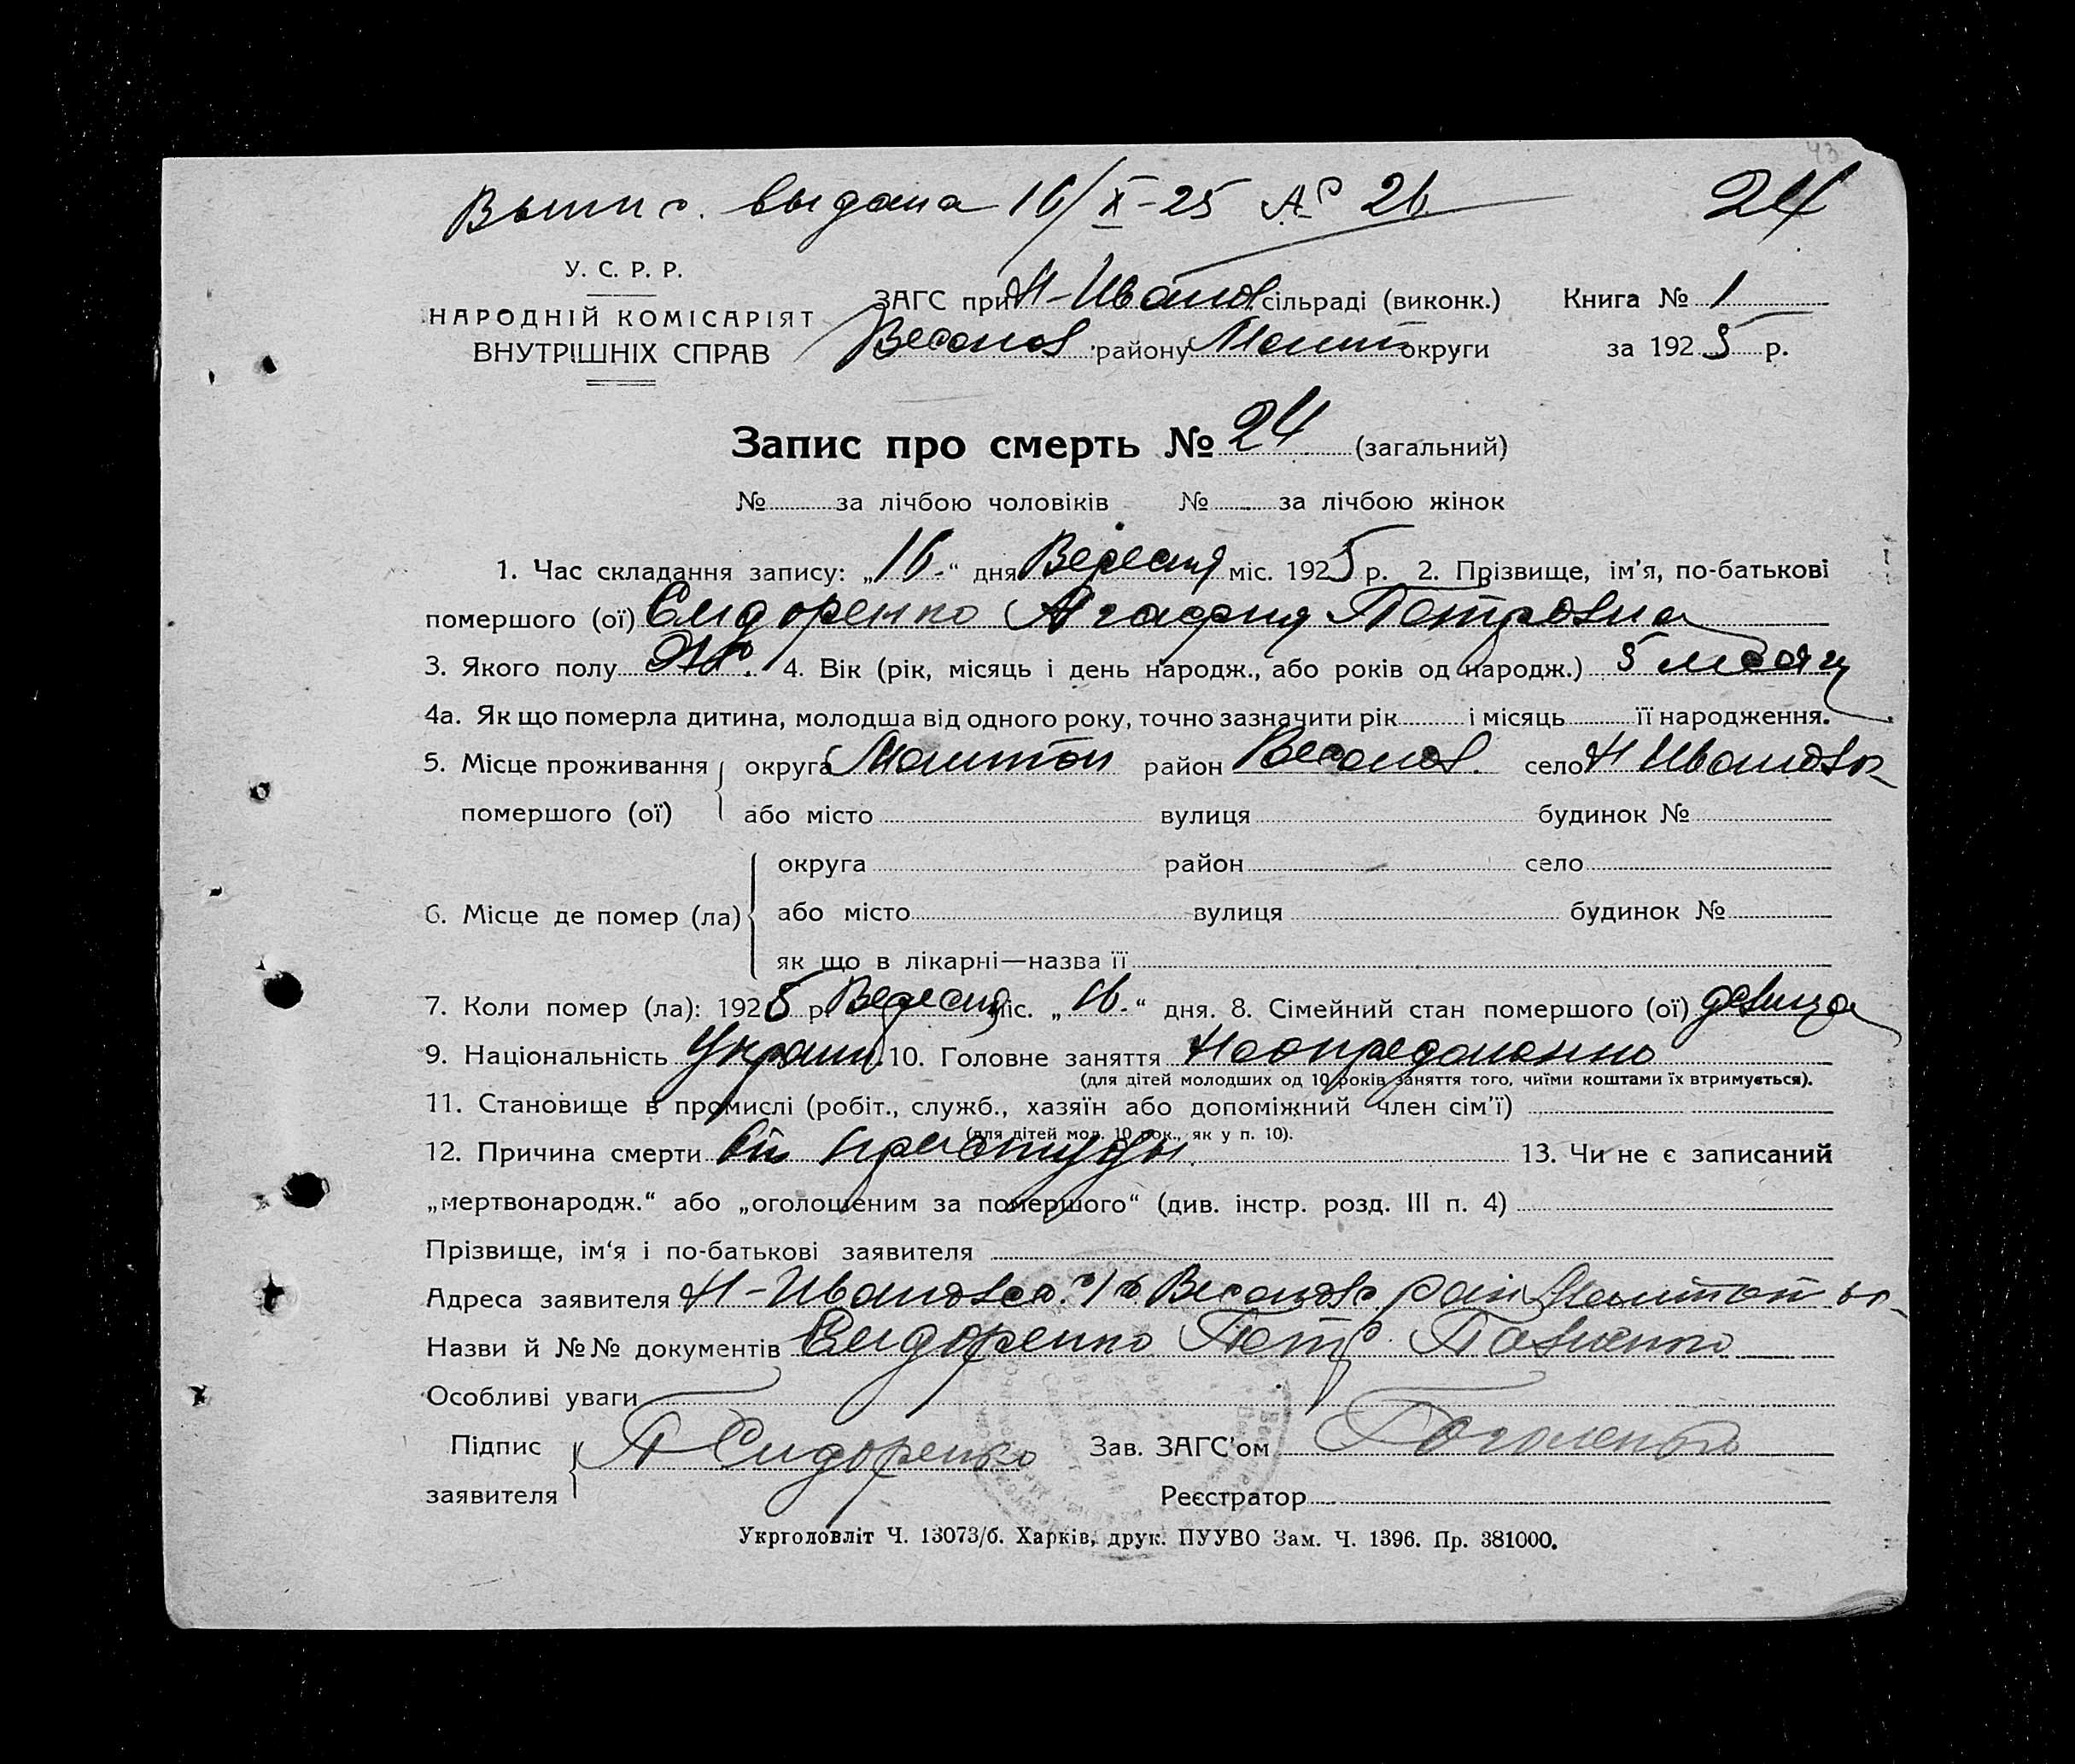 43
Выпис. выдана 16/X-25 № 26
24
У. С. Р. Р.
НАРОДНІЙ КОМІСАРІЯТ
ВНУТРІШНІХ СПРАВ
ЗАГС при Н-Иванов. сільраді (виконк.)
Веселов. району Мелит округи
Книга № 1
за 1925 р.
Запис про смерть № 24 (загальний)
№ за лічбою чоловіків № за лічбою жінок
1. Час складання запису: „16.“ дня Вересня міс. 1925 р. 2. Прізвище, ім’я, по-батькові
помершого (ої) Сидоренко Агафия Петровна
3. Якого полу Ж. 4. Вік (рік, місяць і день народж., або років од народж.) 5 месяц
4а. Як що померла дитина, молодша від одного року, точно зазначити рік і місяць її народження.
5. Місце проживання округа Мелитоп район Веселов. село Н Ивановк
помершого (ої) або місто вулиця будинок №
округа район село
6. Місце де помер (ла) або місто вулиця будинок №
як що в лікарні—назва її
7. Коли помер (ла): 1925 р. Вересня міс. „16.“ дня. 8. Сімейний стан помершого (ої) девица
9. Національність Украин. 10. Головне заняття Неопределенно
(для дітей молодших од 10 років заняття того, чиїми коштами їх втримується).
11. Становище в промислі (робіт., служб., хазяїн або допоміжний член сім’ї)
(для дітей мол. 10 рок., як у п. 10).
12. Причина смерти От простуды. 13. Чи не є записаний
„мертвонародж.“ або „оголошеним за помершого“ (див. інстр. розд. III п. 4)
Прізвище, ім‘я і по-батькові заявителя
Адреса заявителя Н-Ивановка Веселовс рай Мелитоп
Назви й №№ документів Сидоренко Петр Павленко
Особливі уваги
Підпис П Сидоренко Зав. ЗАГС’ом
заявителя Реєстратор
Укрголовліт Ч. 13073/б. Харків, друк. ПУУВО Зам. Ч. 1396. Пр. 381000.